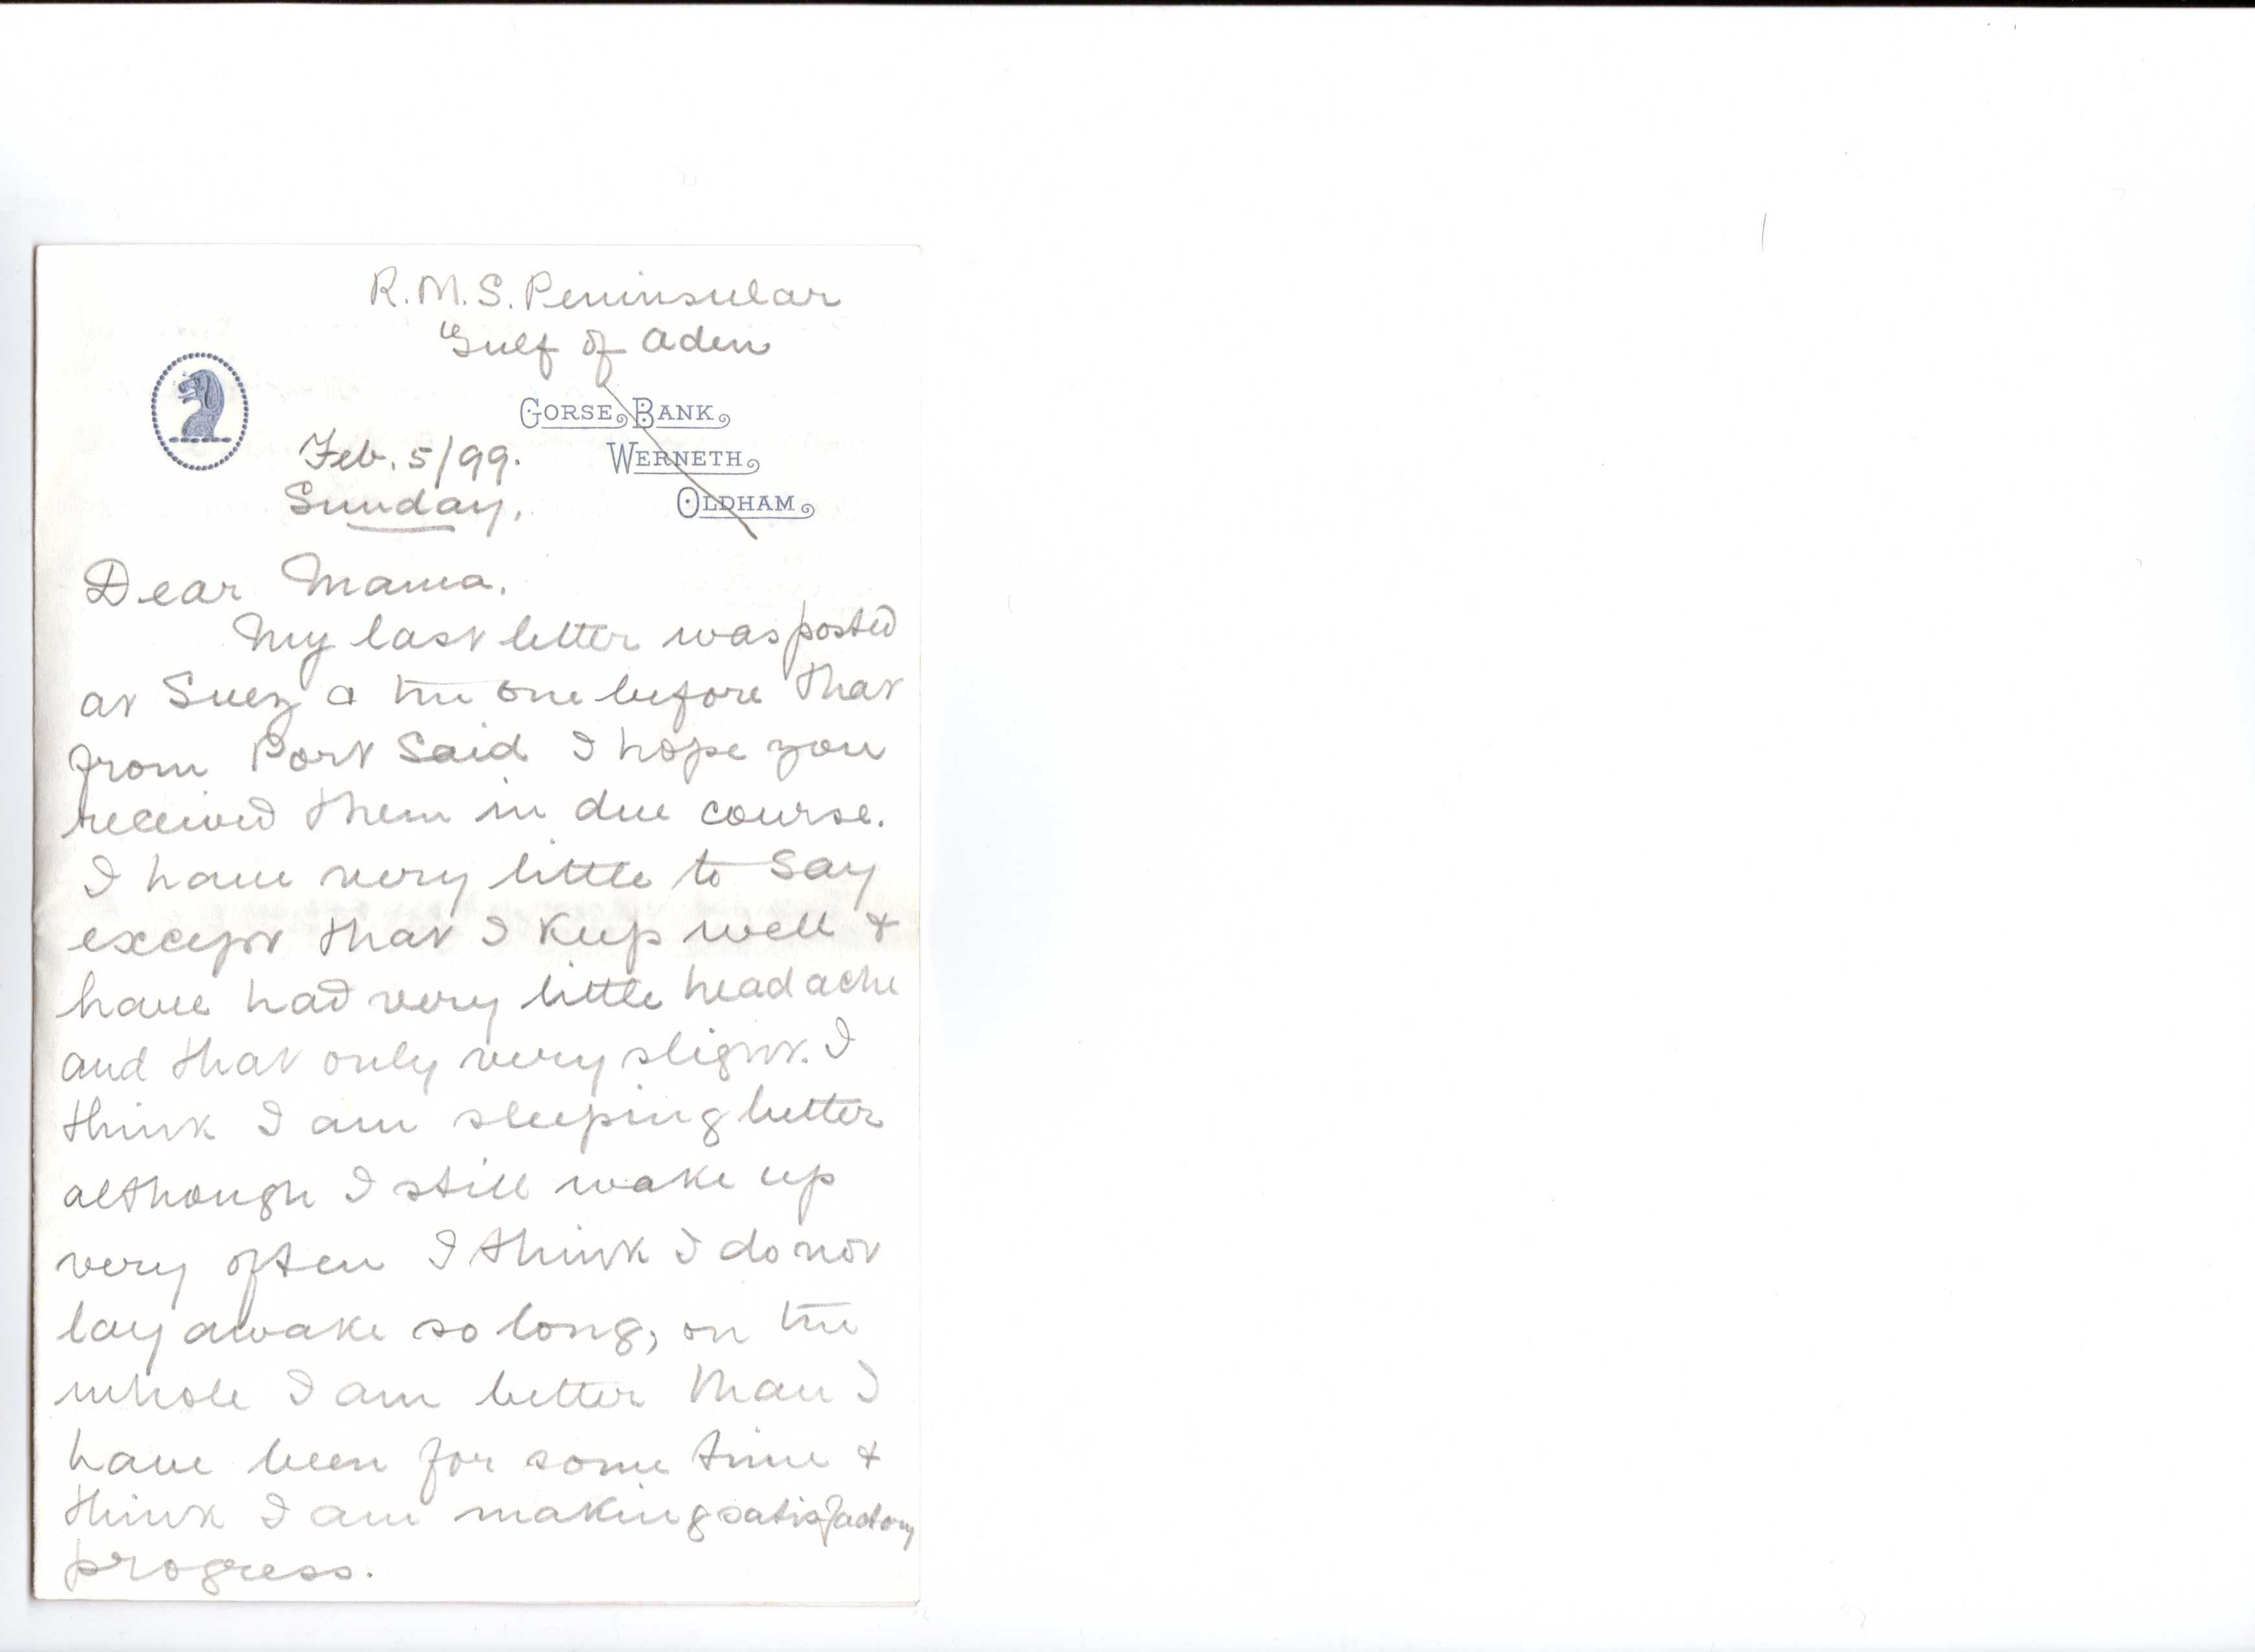 R.M.S. Peninsular
Gulf of Aden
GORSE BANK
WERNETH
OLDHAM
Feb. 5/99.
Sunday,
Dear Mama.
My last letter was posted
at Suez & the one before that
from Port Said I hope you
received them in due course.
I have very little to say
except that I keep well &
have had very little headache
and that only very slight. I
think I am sleeping better
although I still wake up
very often I think I do not
lay awake so long, on the
whole I am better than I
have been for some time &
think I am making satisfactory
progress.